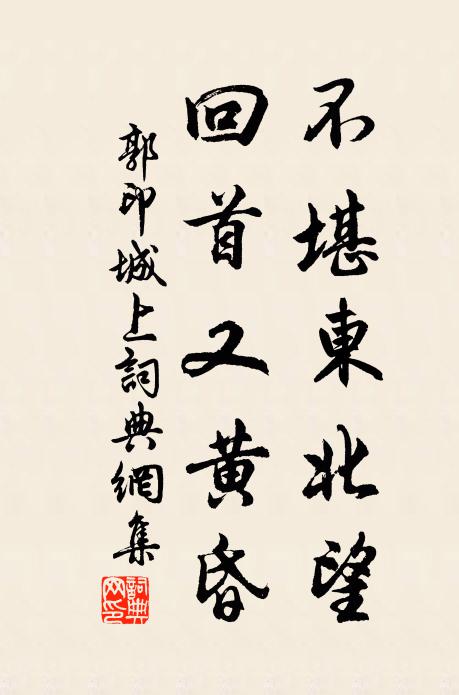 不堪東北望
回首又黄昏
郭印城上詞典網集
詞典網印